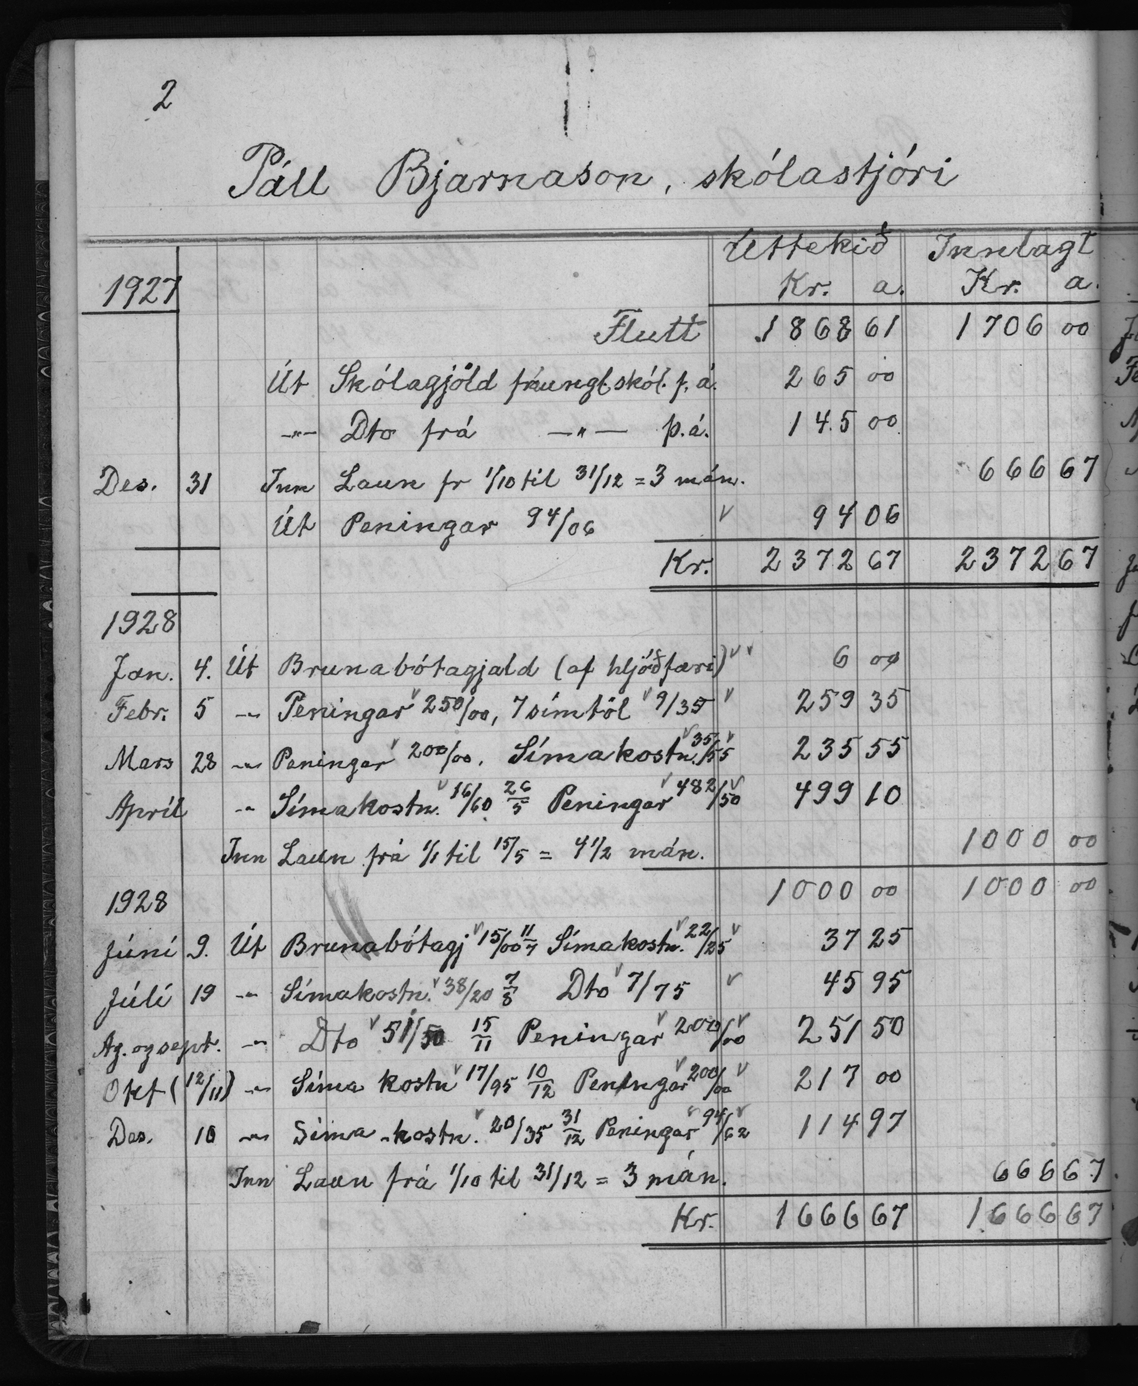 2
Páll Bjarnason, skólastjóri
Úttekið Innlagt
1927 Kr. a. Kr. a.
Flutt 1868 61 1706 00
Út Skólagjöld frá ungl.skól. f.á. 265 00
—〃— Dto frá —〃— þ.á. 145 00
Des. 31 Inn Laun fr 1/10 til 31/12 = 3 mán. 666 67
Út Peningar 94/06 94 06
Kr. 2372 67 2372 67
1928
Jan. 4. Út Brunabótagjald (af hljóðfæri) 6 00
Febr. 5 -〃- Peningar 250/00, 7 símtöl 9/35 259 35
Mars 28 -〃- Peningar 200/00. Símakostn. 35/55 235 55
Apríl -〃- Símakostn. 16/60 26/5 Peningar 482/50 499 10
Inn Laun frá 1/1 til 15/5 = 4 1/2 mán. 1000 00
1928 1000 00 1000 00
Júní 9. Út Brunabótagj 15/00 11/7 Símakostn. 22/25 37 25
Júlí 19 -〃- Símakostn. 38/20 7/8 Dto 7/75 45 95
Ag. og sept. -〃- Dto 51/50 15/11 Peningar 200/00 251 50
Okt (12/11) -〃- Síma kostn 17/95 10/12 Peningar 200/00 217 00
Des. 10 -〃- Síma-kostn. 20/35 31/12 Peningar 94/62 114 97
Inn Laun frá 1/10 til 31/12 = 3 mán. 666 67
Kr. 1666 67 1666 67